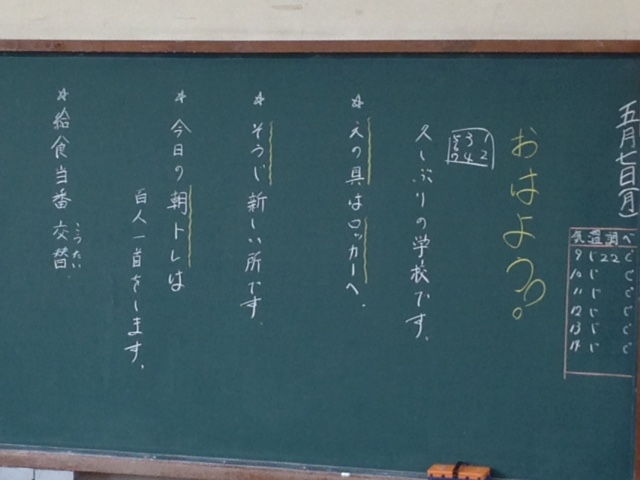 五月七日(月)
気温調べ
9じ22℃
10じ ℃
11じ ℃
12じ ℃
13じ ℃
14じ ℃
おはよう!
久しぶりの学校です。
☆えの具はロッカーへ。
☆そうじ新しい所です。
☆今日の朝トレは
百人一首をします。
☆給食当番交替。
こうたい